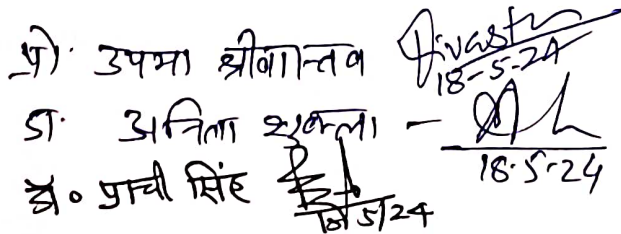 प्रो. उपमा श्रीवास्तव
18-5-24
डा. अनिता शुक्ला -
18.5.24
डॉ॰ प्राची सिंह
5/24